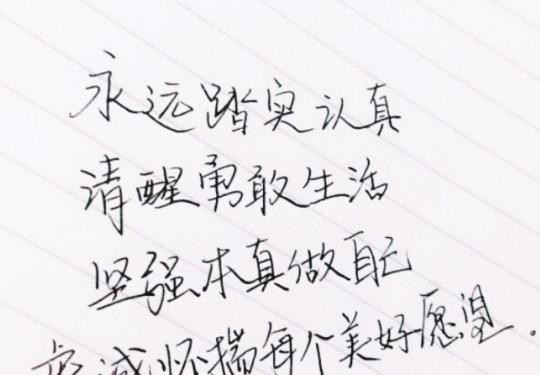 永远踏实认真
清醒勇敢生活
坚强本真做自己
虔诚怀揣每个美好愿望.